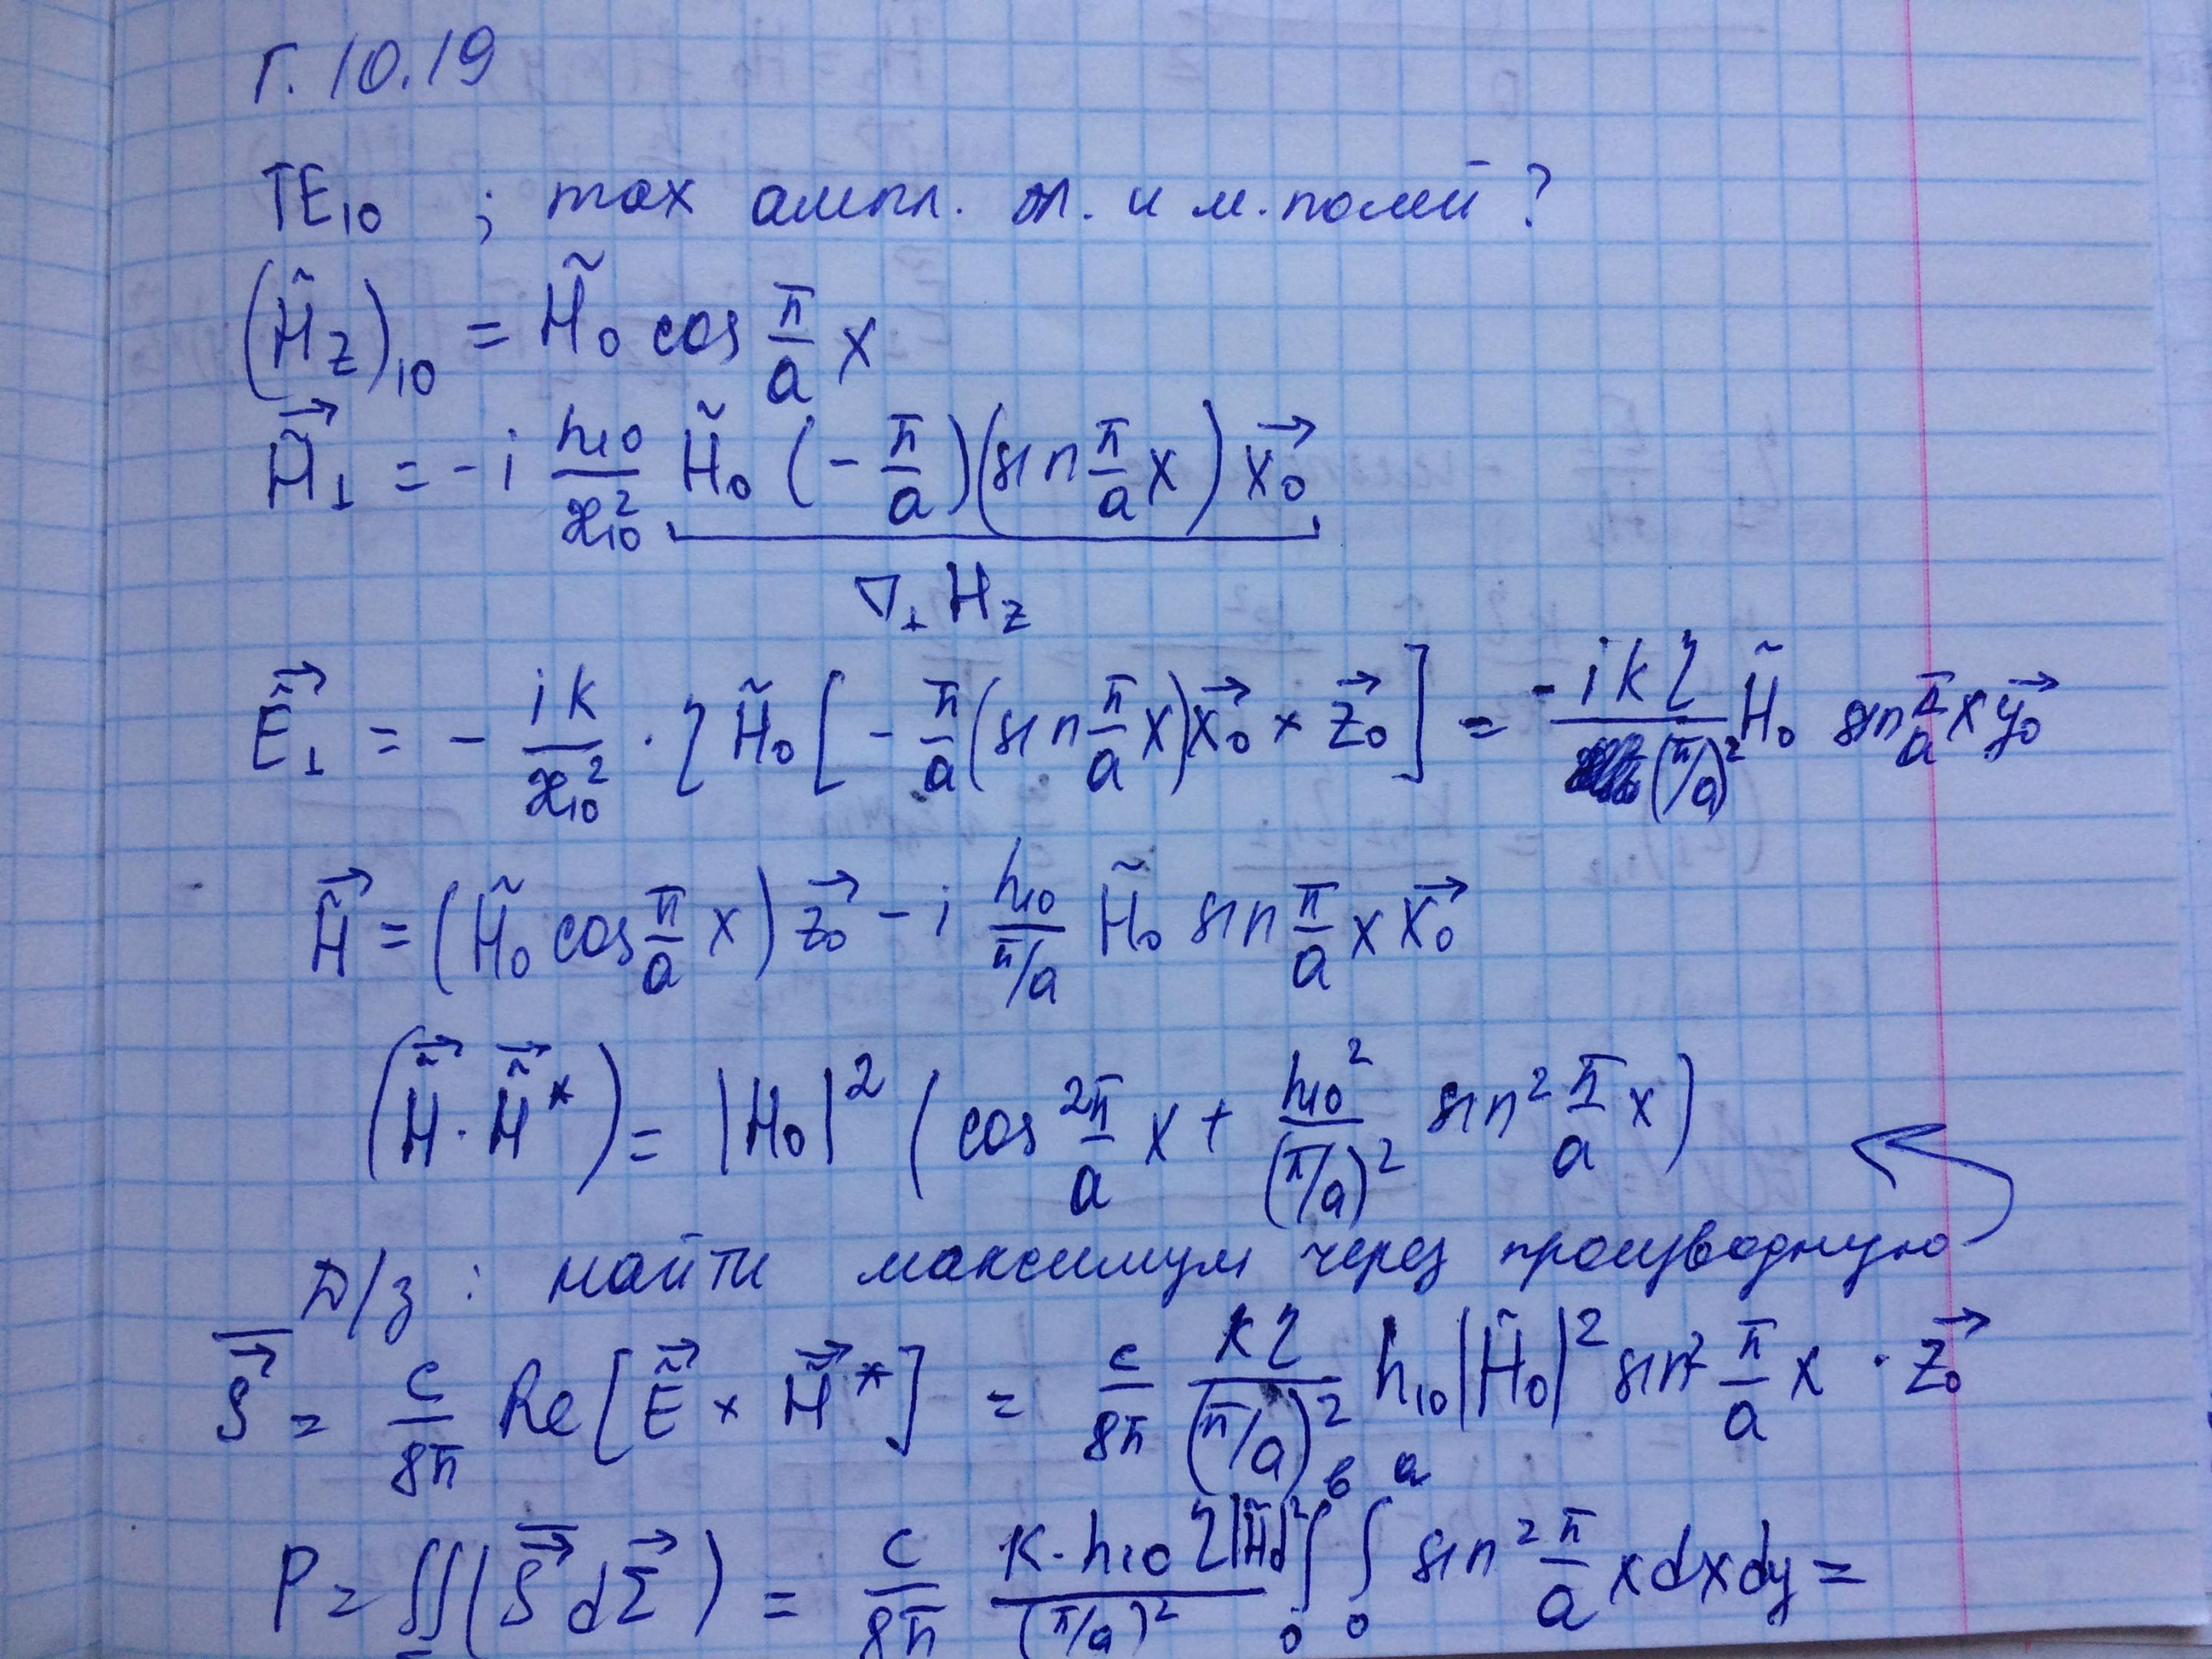 Г. 10.19
TE₁₀ ; max ампл. эл. и м. полей ?
(H̃_z)₁₀ = H̃₀ cos π/a x
H̃⃗_⊥ = -i h₁₀/æ₁₀² H̃₀ (- π/a)(sin π/a x) x⃗₀
∇_⊥ H_z
Ẽ⃗_⊥ = - ik/æ₁₀² · η H̃₀ [- π/a (sin π/a x) x⃗₀ × z⃗₀] = -ikη/(π/a)² H̃₀ sin π/a x y⃗₀
H̃⃗ = (H̃₀ cos π/a x) z⃗₀ - i h₁₀/(π/a) H̃₀ sin π/a x x⃗₀
(H̃⃗ · H̃⃗*) = |H₀|² (cos² π/a x + h₁₀²/(π/a)² sin² π/a x)
Д/з : найти максимум через производную
S̅⃗ = c/8π Re[Ẽ⃗ × H̃⃗*] = c/8π kη/(π/a)² h₁₀|H̃₀|² sin² π/a x · z⃗₀
P = ∬(S̅⃗ dΣ⃗) = c/8π k·h₁₀ η|H̃₀|²/(π/a)² ∫₀ᵇ ∫₀ᵃ sin² π/a x dx dy =